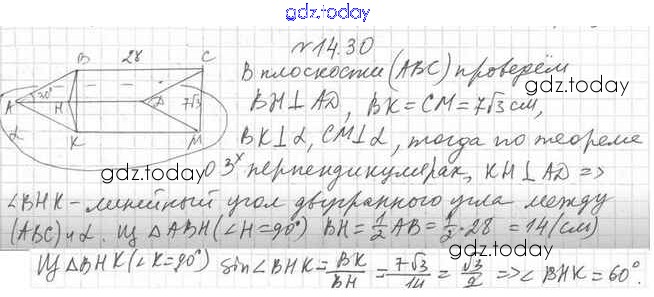 gdz.today
№14.30
В плоскости (ABC) проведём
gdz.today
BH⊥AD, BK=CM=7√3 см,
BK⊥α, CM⊥α, тогда по теореме
gdz.today
о 3х перпендикулярах, KH⊥AD =>
∠BHK - линейный угол двугранного угла между
gdz.today
(ABC) и α. Из △ABH (∠H=90°) BH=1/2 AB=1/2·28=14 (см)
Из △BHK (∠K=90°) sin∠BHK=BK/BH=7√3/14=√3/2 => ∠BHK=60°.
gdz.today
B 28 C
A 30° H D 7√3
α K M